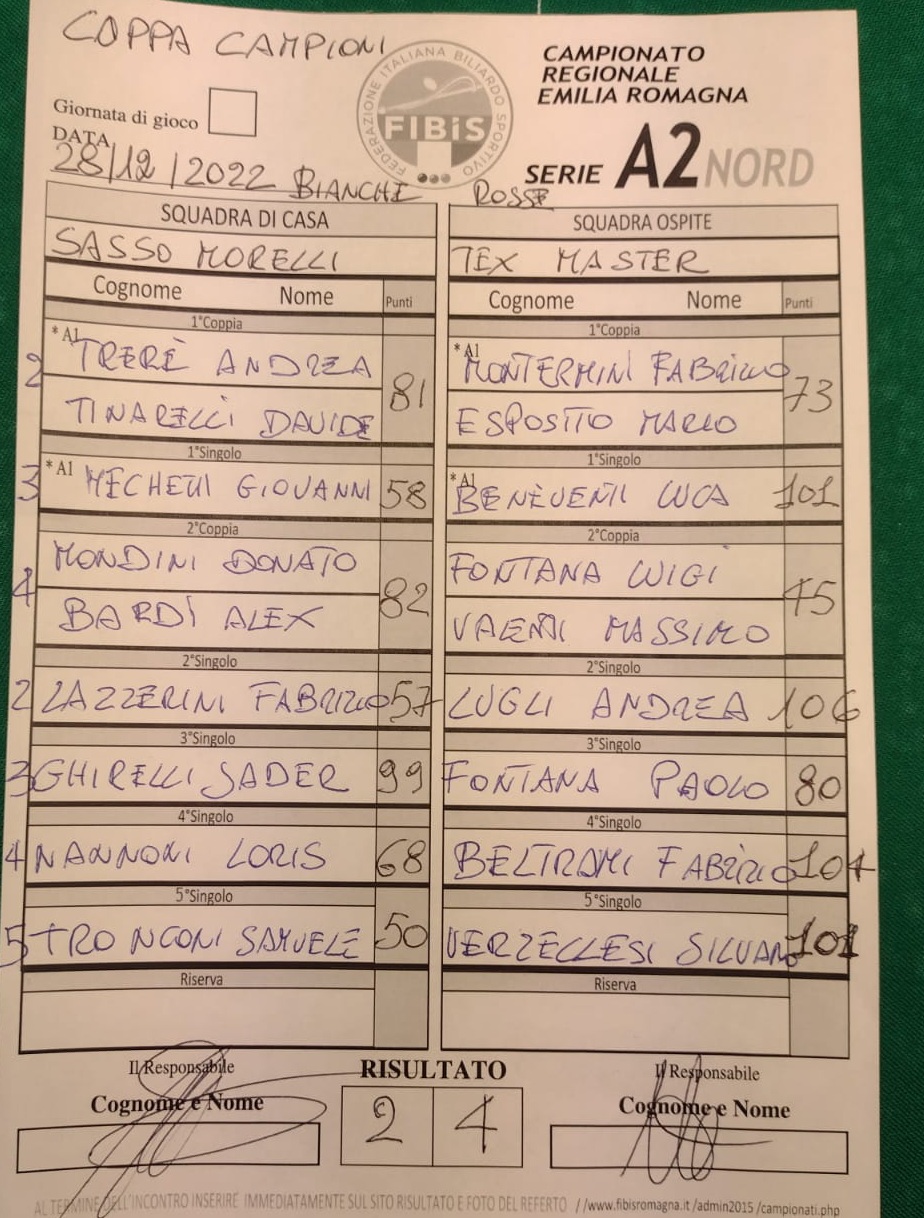 COPPA CAMPIONI
FEDERAZIONE ITALIANA BILIARDO SPORTIVO
FIBiS
CAMPIONATO
REGIONALE
EMILIA ROMAGNA
Giornata di gioco
DATA
28/12/2022 BIANCHE ROSSE
SERIE A2 NORD
SQUADRA DI CASA SQUADRA OSPITE
SASSO MORELLI TEX MASTER
Cognome Nome Punti Cognome Nome Punti
1°Coppia 1°Coppia
2 * A1 TRERÈ ANDREA 81 * A1 MONTERMINI FABRIZIO 73
TINARELLI DAVIDE ESPOSITO MARIO
1°Singolo 1°Singolo
3 * A1 MECHETTI GIOVANNI 58 * A1 BENEVENTI LUCA 101
2°Coppia 2°Coppia
4 MONDINI DONATO 82 FONTANA LUIGI 45
BARDI ALEX VALENTI MASSIMO
2°Singolo 2°Singolo
2 LAZZERINI FABRIZIO 57 LUGLI ANDREA 106
3°Singolo 3°Singolo
3 GHIRELLI SADER 99 FONTANA PAOLO 80
4°Singolo 4°Singolo
4 NANNONI LORIS 68 BELTRAMI FABRIZIO 101
5°Singolo 5°Singolo
5 TRONCONI SAMUELE 50 VERZELLESI SILVANO 101
Riserva Riserva
Il Responsabile RISULTATO Il Responsabile
Cognome e Nome 2 4 Cognome e Nome
AL TERMINE DELL'INCONTRO INSERIRE IMMEDIATAMENTE SUL SITO RISULTATO E FOTO DEL REFERTO //www.fibisromagna.it /admin2015 /campionati.php